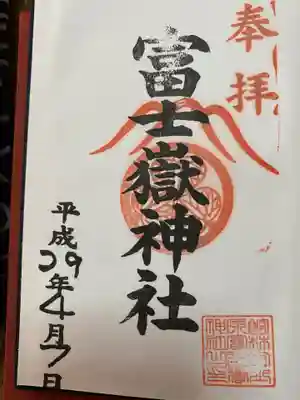 奉拝
富士嶽神社
平成29年4月7日